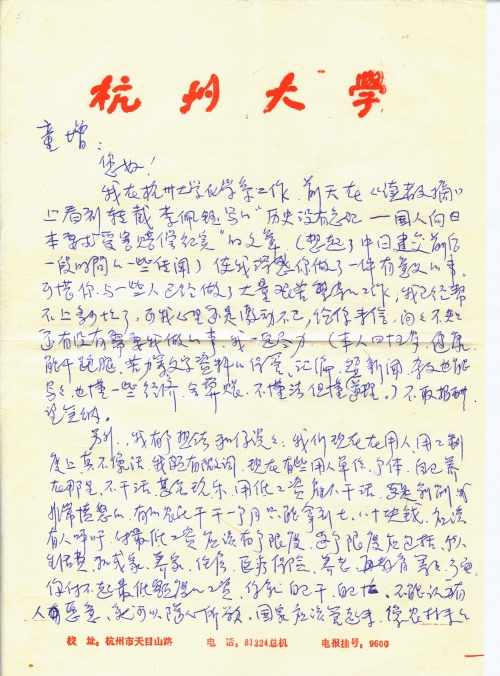 杭州大学
童增：
您好！
我在杭州大学化学系工作，前天在《读者文摘》
上看到转载李佩钰写的“历史没有忘记——国人向日
本要求受害赔偿纪实”的文章，（想起了中日建交前后
一段时间的一些传闻）使我理想你做了一件有意义的事。
可惜你与一些人已经做了大量艰苦的工作，我已经帮
不上多少忙了，可我心里还是激动不已，给你来信，问问不知
还有没有需要我做的事，我一定尽力（本人四十五岁，健康
能干跑腿，若力气文字资料的收受、汇编，
写写，也懂一些经济、会算账，不懂法但懂道理。）不取报酬，
望笑纳。
另外，我有个想法和你谈谈：我们现在在用人、用工制
度上真不像话，现在有些用人单位、个体，自己养
在那里，不干活，甚至玩乐，用低工资雇人干活，
非常愤怒的，有的农民工干一个月只能拿到七、八十块钱，应该
有人呼吁，付最低工资应该有个限度，这个限度应包括，个人
生活费和成家、养家、住房、医疗保险、养老、
你付不起最低额度的工资，你就自己干，不能认为有
人愿意，就可以随心所欲，国家应该管起来，像农村来的
校 址：杭州市天目山路 电 话：81224总机 电报挂号：9600